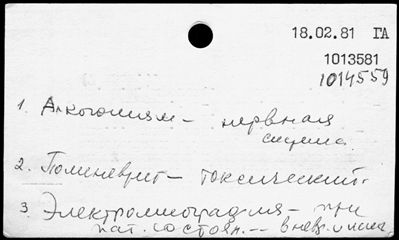 18.02.81 ГА
1013581
1014559
1. Алкоголизм — нервная
система.
2. Полиневрит — токсический.
3. Электромиография — при
пат. состоян. --